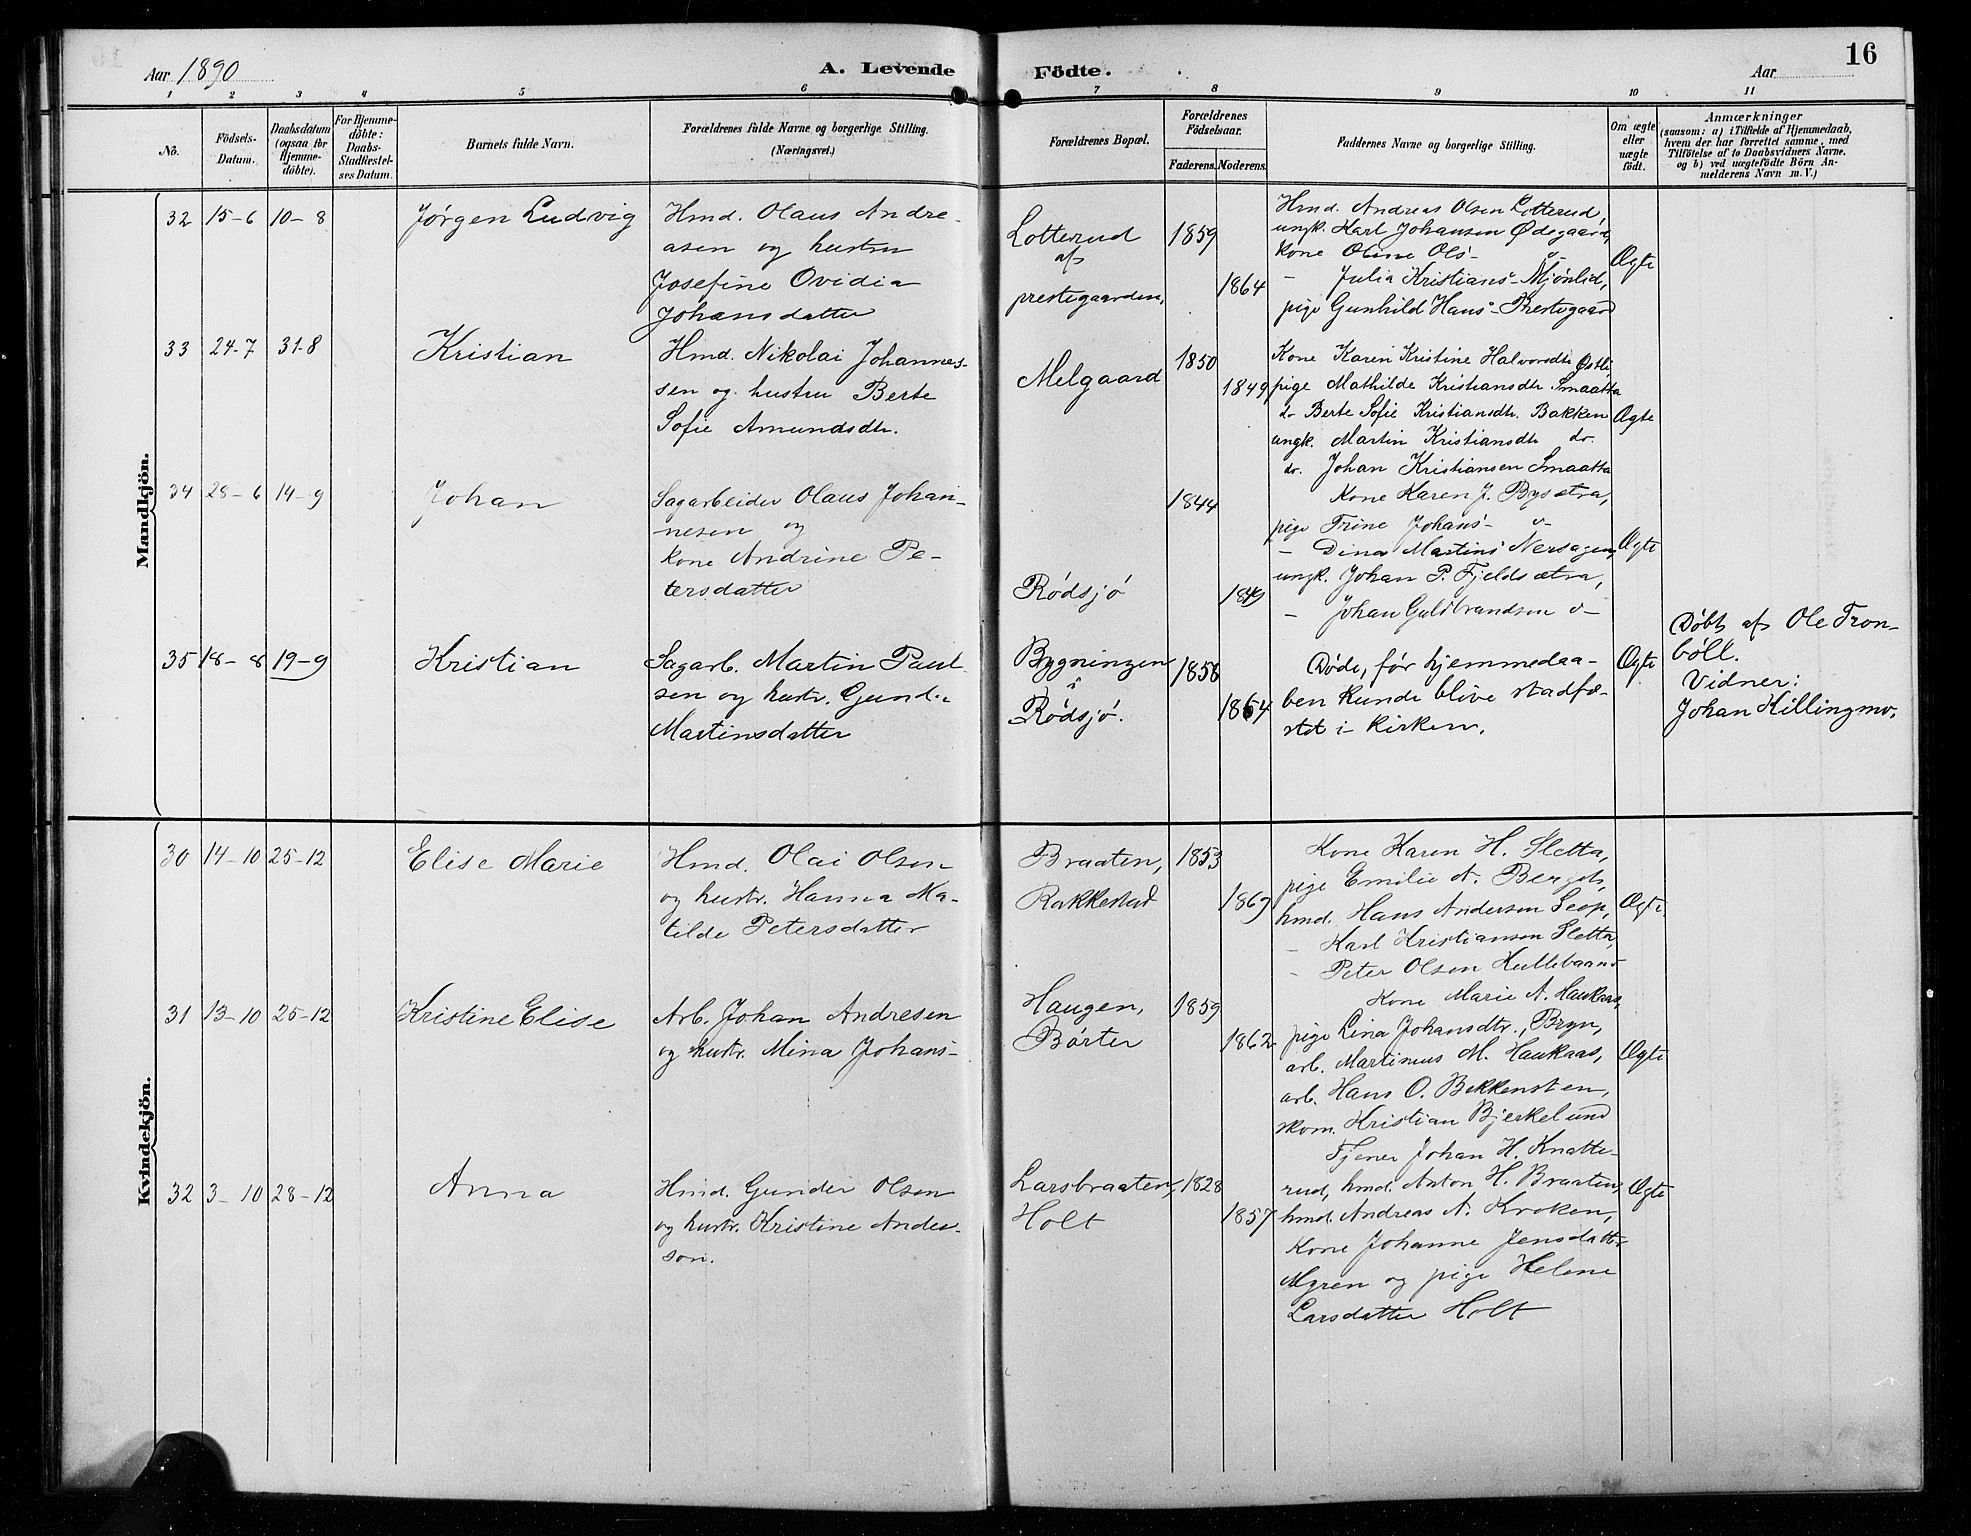 Aar 1890
A. Levende Födte.
16
Aar
1 2 3 4 5 6 7 8 9 10 11
No.
Födsels-
Datum.
Daabsdatum
(ogsaa for
Hjemme-
döbte).
For Hjemme-
döbte:
Daabs-
Stadfæstel-
ses Datum.
Barnets fulde Navn.
Forældrenes fulde Navne og borgerlige Stilling.
(Næringsvei.)
Forældrenes Bopæl.
Forældrenes
Födselsaar.
Faderens. Moderens.
Faddernes Navne og borgerlige Stilling.
Om ægte
eller
uægte
födt.
Anmærkninger
(saasom: a) i Tilfælde af Hjemmedaab,
hvem der har forrettet samme, med
Tilföielse af to Daabsvidners Navne,
og b) ved uægtefödte Börn An-
melderens Navn m. V.)
Mandkjön.
32 15-6 10-8
Jørgen Ludvig
Hmd. Olaus Andre-
asen og hustru
Josefine Ovidia
Johansdatter
Lotterud
af
prestegaarden,
1859
1864
Hmd. Andreas Olsen Lotterud,
ungk. Karl Johansen Ødegaard,
kone Oline Ols-
- Julia Kristians- Mjönlid,
pige Gunhild Hans- Prestegaard
Ægte
33 24-7 31-8
Kristian
Hmd. Nikolai Johannes-
sen og hustru Berte
Sofie Amundsdtr.
Melgaard
1850
1849
Kone Karen Kristine Halvorsdtr Østli,
pige Mathilde Kristiansdtr. Smaatta
do Berte Sofie Kristiansdtr. Bakken
ungk. Martin Kristiansdtr do.
do. Johan Kristiansen Smaatta
Ægte
34 28-6 14-9
Johan
Sagarbeider Olaus Johan-
nesen og
kone Andrine Pe-
tersdatter
Rødsjø
1844
1849
Kone Karen J. Bysætra,
pige Trine Johans- v-
- Dina Martins- Nersagen,
ungk. Johan P. Fjeldsætra,
- Johan Guldbrandsen v-
Ægte
35 18-8 19-9
Kristian
Sagarb. Martin Paul-
sen og hustr. Gunda
Martinsdatter
Bygningen
i
Rødsjø.
1858
1864
Døde, før hjemmedaa-
ben kunde blive stadfæ-
stet i kirken.
Ægte
Døbt af Ole Tron-
böll.
Vidner:
Johan Killingmo.
Kvindekjön.
30 14-10 25-12
Elise Marie
Hmd. Olai Olsen
og hustr. Hanna Ma-
tilde Petersdatter
Braaten,
Rakkestad
1853
1869
Kone Karen H. Sletta,
pige Emilie A. Berget,
hmd. Hans Andersen Seop,
- Karl Kristiansen Sletta,
- Peter Olsen Hullebaand
Ægte
31 13-10 25-12
Kristine Elise
Arb. Johan Andresen
og hustr. Mina Johans-
Haugen,
Børter
1859
1862
Kone Marie A. Haukaas,
pige Lina Johansdtr., Bryn,
arb. Martinius M. Haukaas,
arb. Hans O. Bekkensten,
skom. Kristian Bjerkelund
Ægte
32 3-10 28-12
Anna
Hmd. Gunder Olsen
og hustr. Kristine Ander-
son.
Larsbraaten,
Holt
1828
1857
Tjener Johan H. Knatte-
rud, hmd. Anton H. Braaten,
hmd. Andreas A. Kroken,
Kone Johanne Jensdatter
Myren og pige Helene
Larsdatter Holt
Ægte